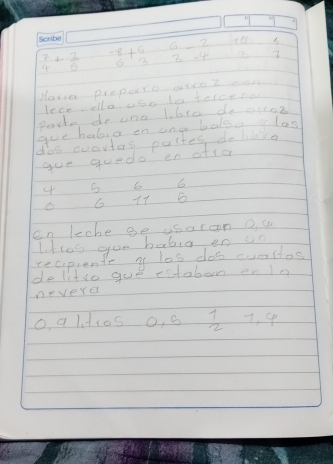 Scribe
Maria preparo arroz con
lece ella uso la tercera
parte de una libra de arroz
que habia en una bolsa y las
dos cuartas partes de libra
que quedo en otra
4 5 6 6
6 6 11 6
en leche se usaron 0,9
litros que habia en un
recipiente y los dos cuartos
de litro que estaban en la
nevera
0,9 litros 0,5 1/2 1,4